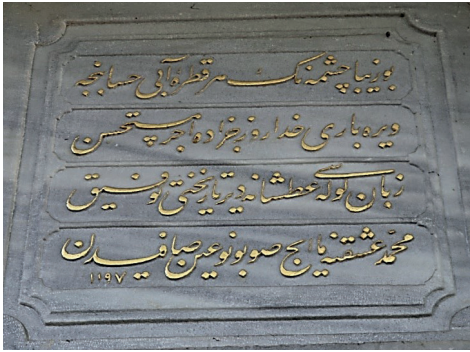 بو زیبا چشمه نك هر قطره آبی حسابنجه
ویره باری خدا روز جزاده اجر مستحسن
زبان لوله سی عطشانه دیر تاریخنی توفیق
محمد عشقنه غا ایچ صو بو نو عین صافیدن
١١٩٧